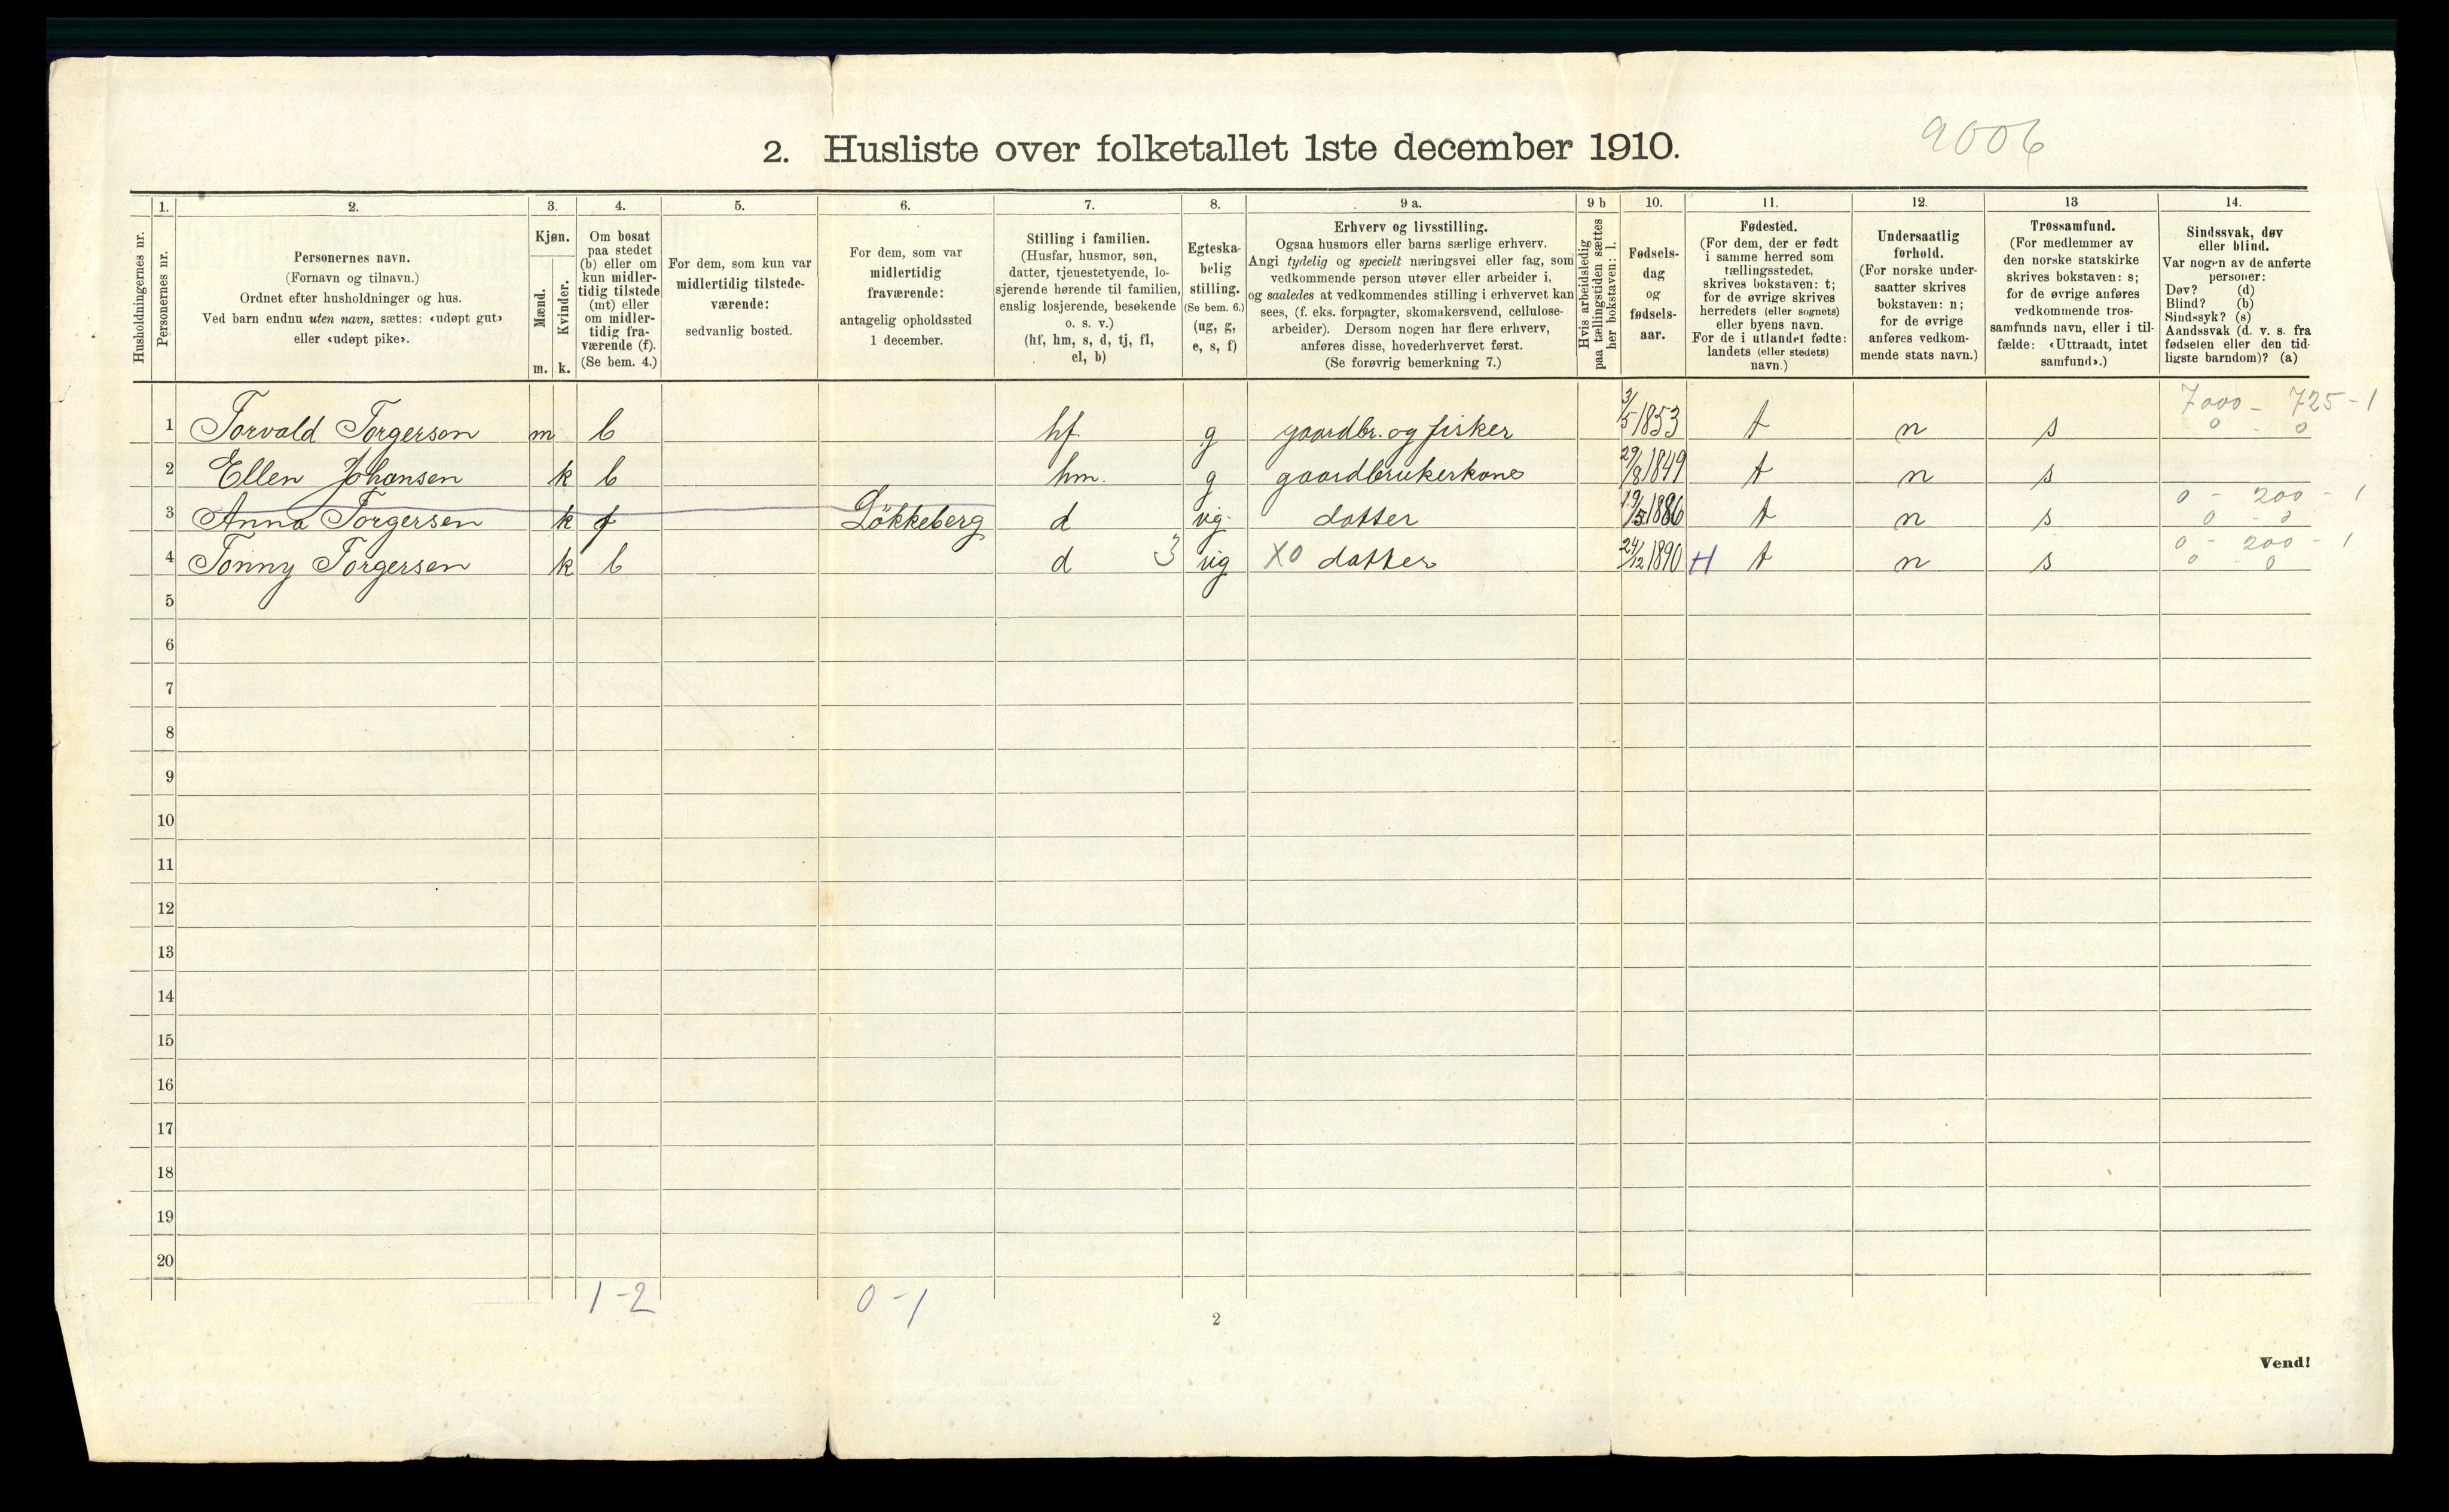 2. Husliste over folketallet 1ste december 1910.
9006
Husholdningernes nr.
1.
Personernes nr.
2.
Personernes navn.
(Fornavn og tilnavn.)
Ordnet efter husholdninger og hus.
Ved barn endnu uten navn, sættes: «udøpt gut»
eller «udøpt pike».
3.
Kjøn.
Mænd.
Kvinder.
m. k.
4.
Om bosat
paa stedet
(b) eller om
kun midler-
tidig tilstede
(mt) eller
om midler-
tidig fra-
værende (f).
(Se bem. 4.)
5.
For dem, som kun var
midlertidig tilstede-
værende:
sedvanlig bosted.
6.
For dem, som var
midlertidig
fraværende:
antagelig opholdssted
1 december.
7.
Stilling i familien.
(Husfar, husmor, søn,
datter, tjenestetyende, lo-
sjerende hørende til familien,
enslig losjerende, besøkende
o. s. v.)
(hf, hm, s, d, tj, fl,
el, b)
8.
Egteska-
belig
stilling.
(Se bem. 6.)
(ug, g,
e, s, f)
9 a.
Erhverv og livsstilling.
Ogsaa husmors eller barns særlige erhverv.
Angi tydelig og specielt næringsvei eller fag, som
vedkommende person utøver eller arbeider i,
og saaledes at vedkommendes stilling i erhvervet kan
sees, (f. eks. forpagter, skomakersvend, cellulose-
arbeider). Dersom nogen har flere erhverv,
anføres disse, hovederhvervet først.
(Se forøvrig bemerkning 7.)
9 b
Hvis arbeidsledig
paa tællingstiden sættes
her bokstaven: l.
10.
Fødsels-
dag
og
fødsels-
aar.
11.
Fødested.
(For dem, der er født
i samme herred som
tællingsstedet,
skrives bokstaven: t;
for de øvrige skrives
herredets (eller sognets)
eller byens navn.
For de i utlandet fødte:
landets (eller stedets)
navn.)
12.
Undersaatlig
forhold.
(For norske under-
saatter skrives
bokstaven: n;
for de øvrige
anføres vedkom-
mende stats navn.)
13
Trossamfund.
(For medlemmer av
den norske statskirke
skrives bokstaven: s;
for de øvrige anføres
vedkommende tros-
samfunds navn, eller i til-
fælde: «Uttraadt, intet
samfund».)
14.
Sindssvak, døv
eller blind.
Var nogen av de anførte
personer:
Døv? (d)
Blind? (b)
Sindssyk? (s)
Aandssvak (d. v. s. fra
fødselen eller den tid-
ligste barndom)? (a)
7000 - 725 - 1
1 Torvald Torgersen m b hf. g gaardbr. og fisker 3/5 1853 t n s 0 - 0
2 Ellen Johansen k b hm. g gaardbrukerkone 29/8 1849 t n s
0 - 200 - 1
3 Anna Torgersen k f Løkkeberg d ug datter 19/5 1886 t n s 0 - 0
0 - 200 - 1
4 Tonny Torgersen k b d 3 ug X0 datter 24/12 1890 H t n s 0 - 0
5
6
7
8
9
10
11
12
13
14
15
16
17
18
19
20
1-2 0-1
2
Vend!